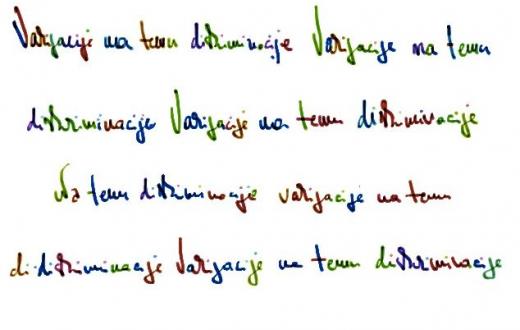 Varijacije na temu diskriminacije Varijacije na temu
diskriminacije Varijacije na temu diskriminacije
Na temu diskriminacije varijacije na temu
di diskriminacije Varijacije na temu diskriminacije